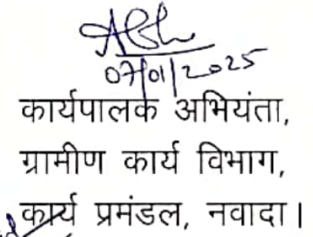 07/01/2025
कार्यपालक अभियंता,
ग्रामीण कार्य विभाग,
कार्य प्रमंडल, नवादा।